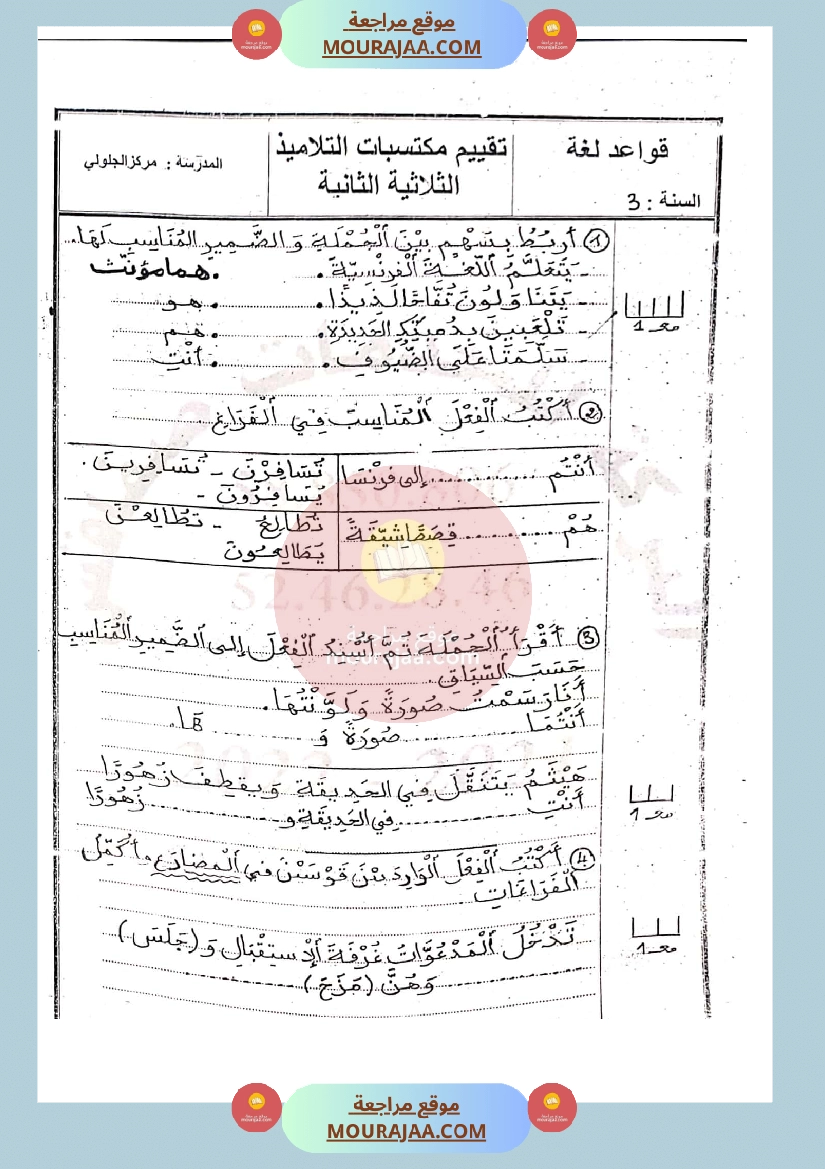 موقع مراجعة
MOURAJAA.COM
قواعد لغة
السنة : 3
تقييم مكتسبات التلاميذ
الثلاثية الثانية
المدرسة : مركز الجلولي
1 أَرْبُطُ بِسَهْمٍ بَيْنَ اَلْجُمْلَةِ وَالضَّمِيرِ المُنَاسِبِ لَهَا.
- يَتَعَلَّمُ اَللُّغَةَ اَلْفَرَنْسِيَّةَ. . هما مؤنث
- يَتَنَاوَلُونَ تُفَّاحًا لَذِيذًا. . هو
- تَلْعَبِينَ بِدُمْيَتِكِ الجَدِيدَةِ. . هم
- سَلَّمَتَا عَلَى الضُّيُوفِ. . أَنْتِ
مع 1
2 أَكْتُبُ اَلْفِعْلَ اَلْمُنَاسِبَ فِي اَلْفَرَاغِ
أَنْتُم ............ إلى فرنْسَا
تُسَافِرْنَ - تُسَافِرِينَ.
يُسَافِرُونَ -
هُمْ .......... قِصَصًا شَيِّقَةً
تُطَالِعُ - تُطَالِعْنَ
يُطَالِعُونَ
3 أَقْرَأُ اُلْجُمْلَةَ ثُمَّ أُسْنِدُ اَلْفِعْلَ إلى اَلضَّمِيرِ اَلْمُنَاسِبِ
حَسَبَ اَلسِّيَاقِ.
أَنَا رَسَمْتُ صُورَةً وَلَوَّنْتُهَا.
أَنْتُمَا ............ صُورَةً وَ ............ هَا.
هَيْثَمُ يَتَنَقَّلُ فِي الحَدِيقَةِ وَيَقْطِفُ زُهُورًا
أَنْتِ ............ فِي الحَدِيقَةِ و ............ زُهُورًا
مع 1
4 أَكْتُبُ اَلْفِعْلَ اَلْوَارِدَ بَيْنَ قَوْسَيْنِ فِي اَلْمُضَارِعِ. أُكَمِّلُ
اَلْفَرَاغَاتِ.
تَدْخُلُ اَلْمَدْعُوَّاتُ غُرْفَةَ اَلاِسْتِقْبَالِ وَ (جَلَسَ)
............ وَهُنَّ (مَزَحَ) ............
مع 1
موقع مراجعة
mourajaa.com
52.46.28.46
موقع مراجعة
MOURAJAA.COM